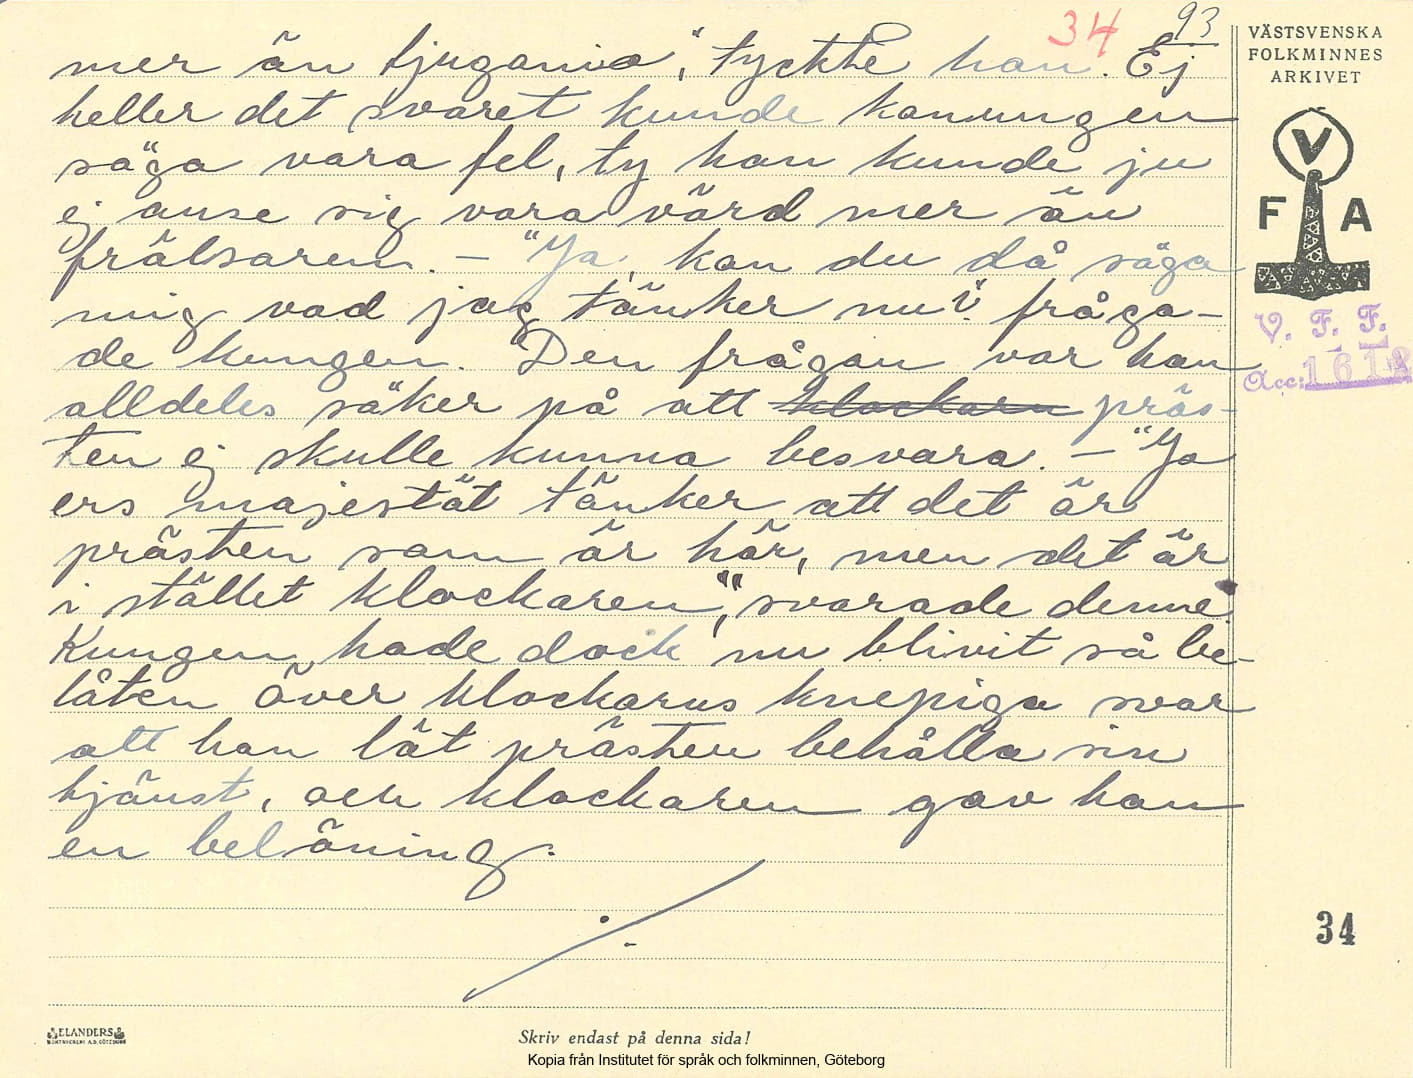 34 93
mer än tjugonio", tyckte han. Ej
heller det svaret kunde konungen
säga vara fel, ty han kunde ju
ej anse sig vara värd mer än
frälsaren. – "Ja, kan du då säga
mig vad jag tänker nu"? fråga-
de kungen. Den frågan var han
alldeles säker på att klockarn präs-
ten ej skulle kunna besvara. – "Ja
ers majestät tänker att det är
prästen som är här, men det är
i stället klockaren", svarade denne.
Kungen hade dock nu blivit så be-
låten över klockarns knepiga svar
att han lät prästen behålla sin
tjänst, och klockaren gav han
en belöning.
VÄSTSVENSKA
FOLKMINNES
ARKIVET
V
F A
V. F. F.
Acc: 1612
34
ELANDERS
Skriv endast på denna sida!
Kopia från Institutet för språk och folkminnen, Göteborg